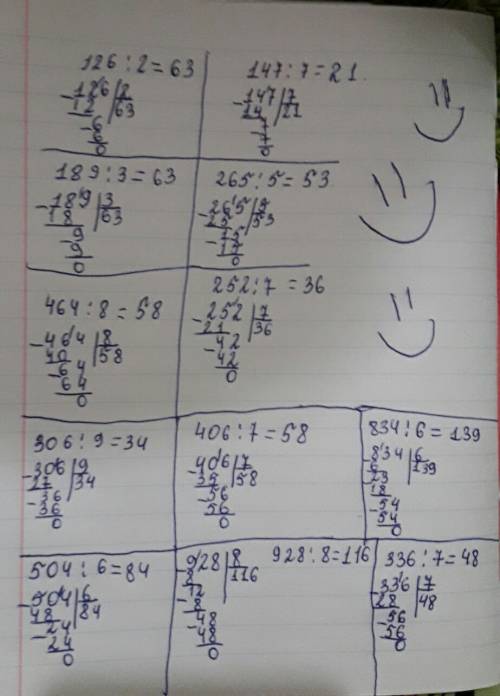 126 : 2 = 63
-126 | 2
12 | 63
-6
6
0
147 : 7 = 21
-147 | 7
14 | 21
-7
7
0
189 : 3 = 63
-189 | 3
18 | 63
-9
9
0
265 : 5 = 53
-265 | 5
25 | 53
-15
15
0
464 : 8 = 58
-464 | 8
40 | 58
-64
64
0
252 : 7 = 36
-252 | 7
21 | 36
-42
42
0
306 : 9 = 34
-306 | 9
27 | 34
-36
36
0
406 : 7 = 58
-406 | 7
35 | 58
-56
56
0
834 : 6 = 139
-834 | 6
6 | 139
-23
18
-54
54
0
504 : 6 = 84
-504 | 6
48 | 84
-24
24
0
928 : 8 = 116
-928 | 8
8 | 116
-12
8
-48
48
0
336 : 7 = 48
-336 | 7
28 | 48
-56
56
0